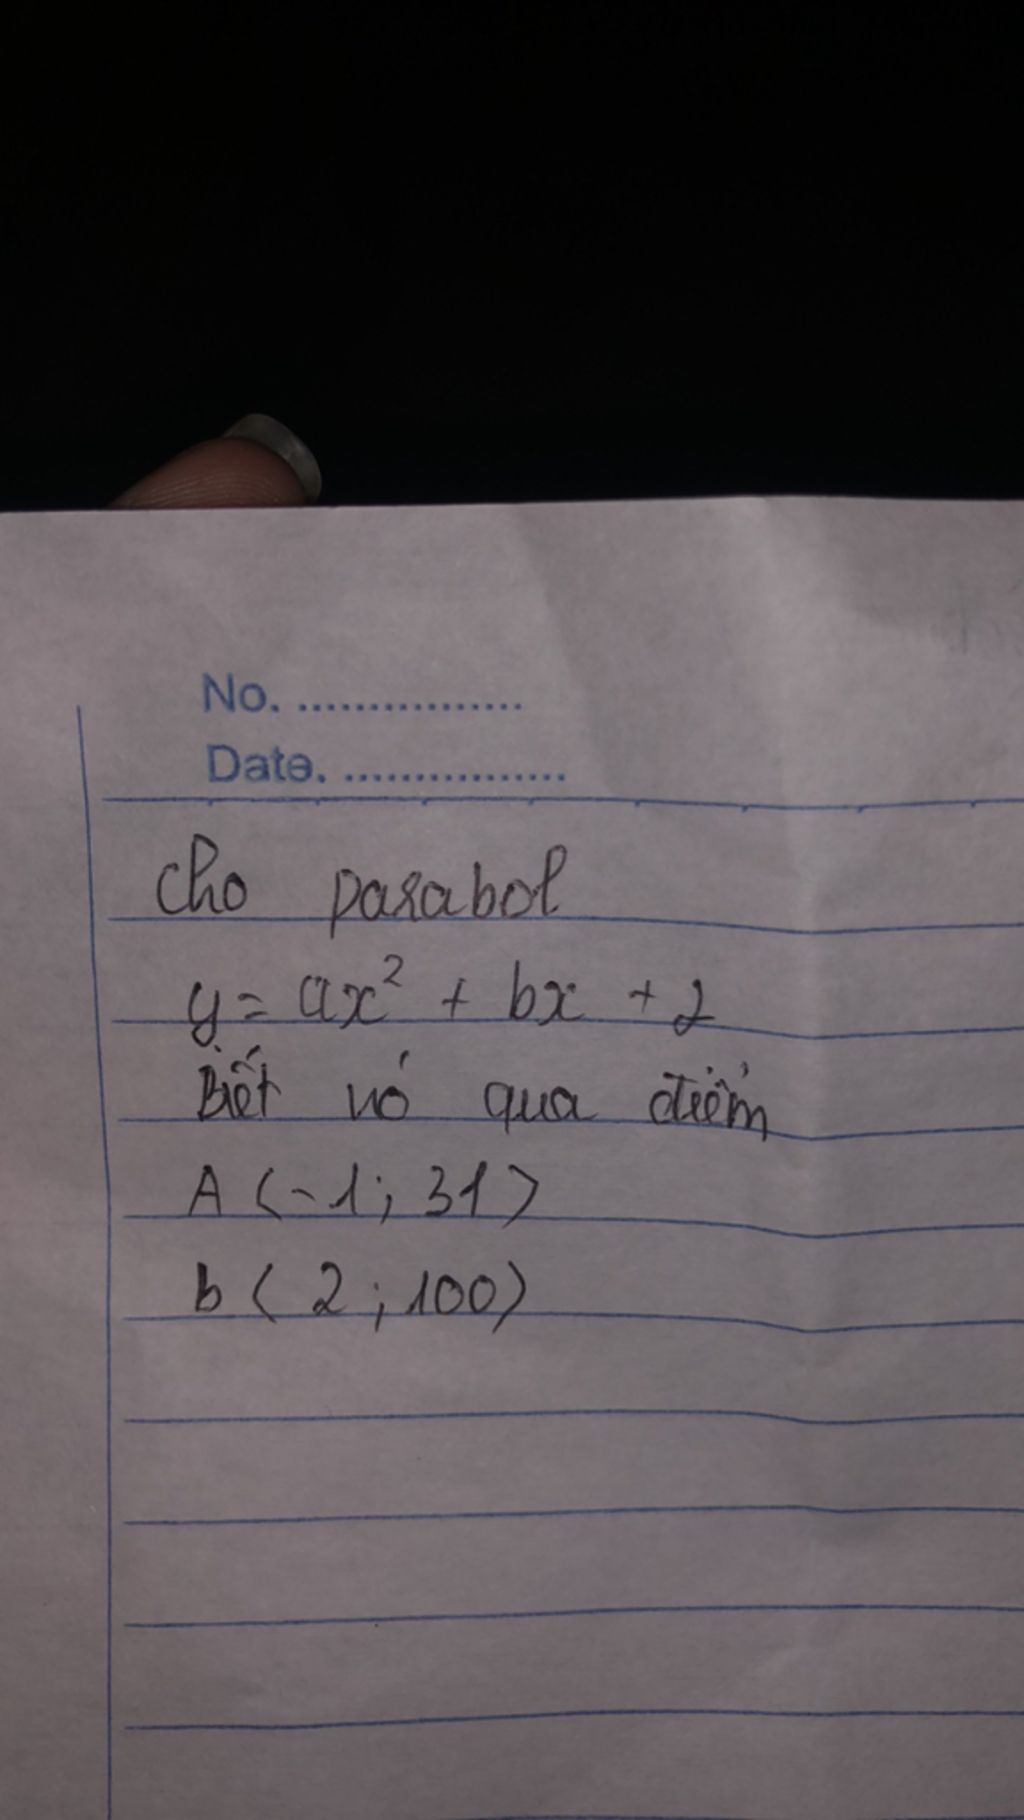 No. ................
Date. ................
Cho parabol
y = ax² + bx + 2
Biết nó qua điểm
A (-1; 31)
b ( 2 ; 100)